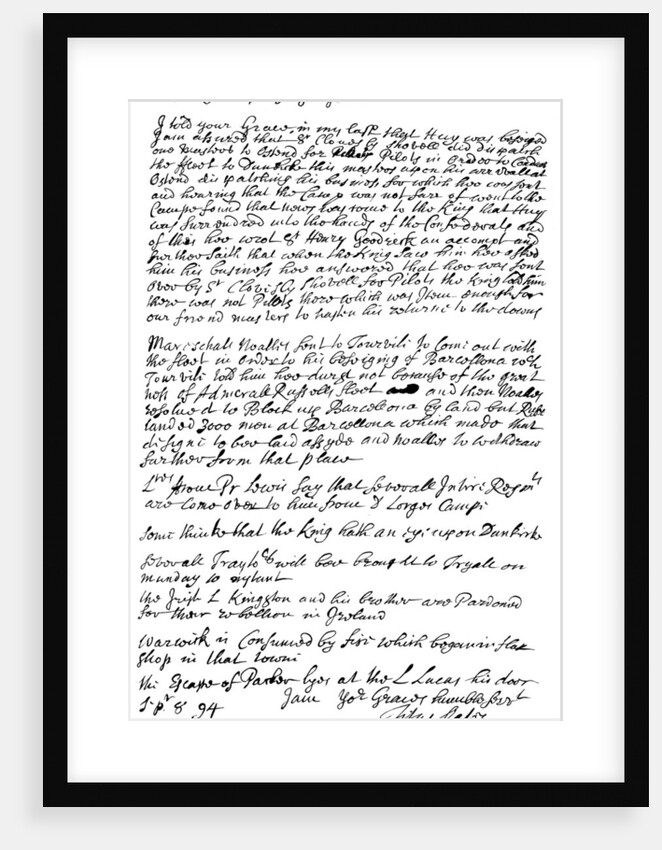 I told your Grace in my last that Huy was besieged
I am assured that Sr Clovesly Shovell did dispatch
one master to Ostend for Pilots in order to
the fleet to Dunkirke this master upon his arrivall at
Ostend dispatching his business for which hee was sent
and hearing that the Camp was not farr off went to the
Campe found that news was come to the King that Huy
was surrendred into the hands of the Confederats and
of this hee wrot Sr Henry Goodrick an accompt and
further saith that when the King saw him hee asked
him his business hee answered that hee was sent
over by Sr Clovisly Shovell for Pilots the King told him
there was not Pillots there which was Itum enough for
our friend masters to hasten his returne to the downs
Mareschall Noalles sent to Tourvili to Comi out with
the fleet in order to his beseiging of Barcellona
Tourvili told him hee durst not because of the great
ness of Admirall Russells fleet and then Noalles
resolved to Block up Barcelona by land but Russ
landed 3000 men at Barcellona which made that
designe to bee laid assyde and noalles to withdraw
further from that place
Lrs from Pr Lewis say that severall Intire Regmts
are come over to him from D Lorges Campi
Some thinke that the King hath an eye upon Dunkirke
Severall Traytors will bee brought to Tryall on
munday so nylant
the Irish L Kingston and his brother are Pardoned
for their rebellion in Ireland
Warwick is Consumed by fire which began in a flax
shop in that towni
the Escape of Parker lyes at the L Lucas his door
Sepr 8 94 I am Yor Graces humble servt